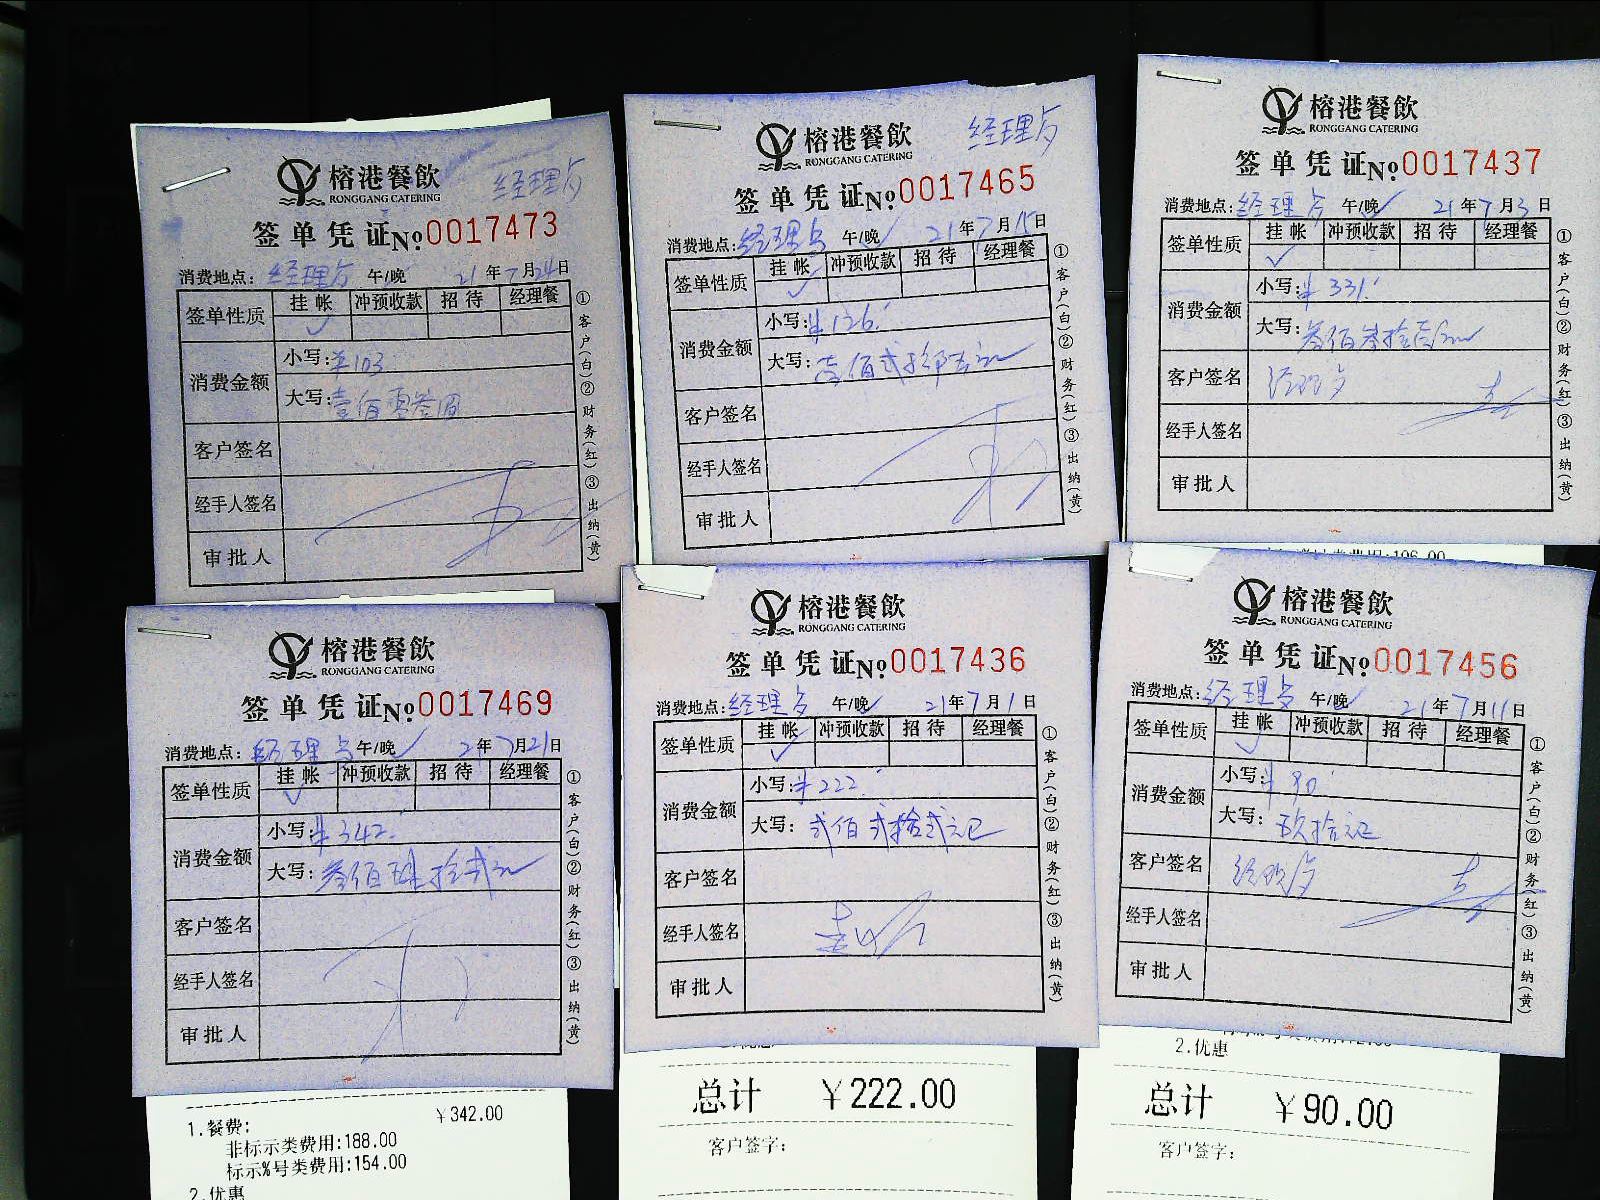 榕港餐飲
RONGGANG CATERING
经理房
签单凭证№0017473
消费地点:经理房 午/晚 21年7月24日
签单性质 挂帐 冲预收款 招待 经理餐
✓
消费金额 小写:¥103
大写:壹佰零叁圆
客户签名
经手人签名
审批人
①客户(白)②财务(红)③出纳(黄)
榕港餐飲
RONGGANG CATERING
经理房
签单凭证№0017465
消费地点:经理房 午/晚✓ 21年7月15日
签单性质 挂帐 冲预收款 招待 经理餐
✓
消费金额 小写:¥126.
大写:壹佰贰拾陆元
客户签名
经手人签名
审批人
①客户(白)②财务(红)③出纳(黄)
榕港餐飲
RONGGANG CATERING
签单凭证№0017437
消费地点:经理房 午/晚✓ 21年7月3日
签单性质 挂帐 冲预收款 招待 经理餐
✓
消费金额 小写:¥331.
大写:叁佰叁拾壹元
客户签名 经理房
经手人签名
审批人
①客户(白)②财务(红)③出纳(黄)
榕港餐飲
RONGGANG CATERING
签单凭证№0017469
消费地点:经理房 午/晚✓ 21年7月21日
签单性质 挂帐 冲预收款 招待 经理餐
✓
消费金额 小写:¥342.
大写:叁佰肆拾贰元
客户签名
经手人签名
审批人
①客户(白)②财务(红)③出纳(黄)
1.餐费: ¥342.00
非标示类费用:188.00
标示%号类费用:154.00
2.优惠
榕港餐飲
RONGGANG CATERING
签单凭证№0017436
消费地点:经理房 午/晚✓ 21年7月1日
签单性质 挂帐 冲预收款 招待 经理餐
✓
消费金额 小写:¥222.
大写:贰佰贰拾贰元正
客户签名
经手人签名
审批人
①客户(白)②财务(红)③出纳(黄)
总计 ¥222.00
客户签字:
榕港餐飲
RONGGANG CATERING
签单凭证№0017456
消费地点:经理房 午/晚✓ 21年7月11日
签单性质 挂帐 冲预收款 招待 经理餐
✓
消费金额 小写:¥90.
大写:玖拾元正
客户签名 经理房
经手人签名
审批人
①客户(白)②财务(红)③出纳(黄)
2.优惠
总计 ¥90.00
客户签字: